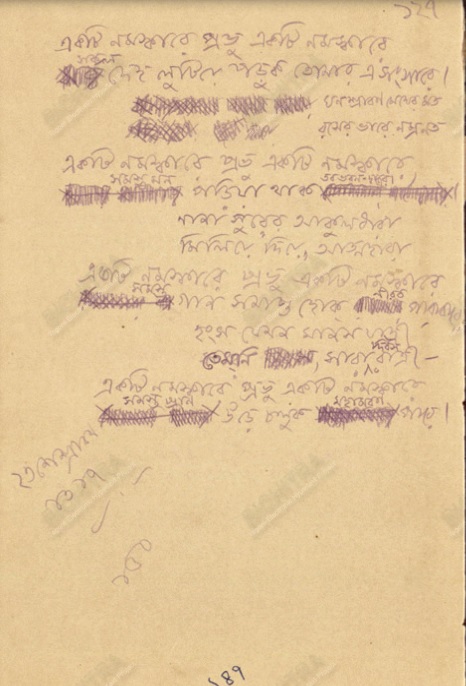 ১২৭
একটি নমস্কারে প্রভু একটি নমস্কারে
সকল
দেহ লুটিয়ে পড়ুক তোমার এ সংসারে।
ঘনশ্রাবণমেঘের মত
রসের ভারে নম্রনত
একটি নমস্কারে প্রভু একটি নমস্কারে
সমস্ত মন
পড়িয়া থাক
নানা সুরের আকুলধারা
মিলিয়ে দিয়ে, আত্মহারা
একটি নমস্কারে প্রভু একটি নমস্কারে
সমস্ত
গান সমাপ্ত হোক নীরব পারাবারে
হংস যেমন মানসযাত্রী
তেমনি সারা দিবস রাত্রি –
একটি নমস্কারে প্রভু একটি নমস্কারে
সমস্ত প্রাণ মহামরণ
উড়ে চলুক পারে।
২৩শে শ্রাবণ
১৩১৭
১৮৭